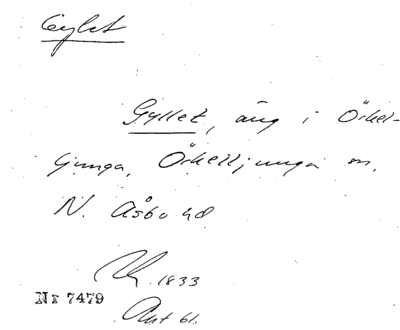 Gyllet
Gyllet, äng i Örkel-
ljunga, Örkelljunga sn,
N. Åsbo hd
1833
Nr 7479
Avt 61.